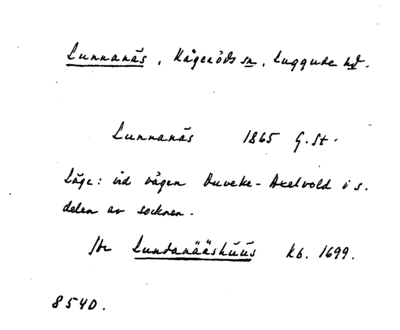 Lunnanäs, Kågeröds sn, Luggude hd.
Lunnanäs 1865 G.St.
Läge: vid vägen Duveke-Axelvold i s.
delen av socknen.
Lundanääshúús kb. 1699.
8540.